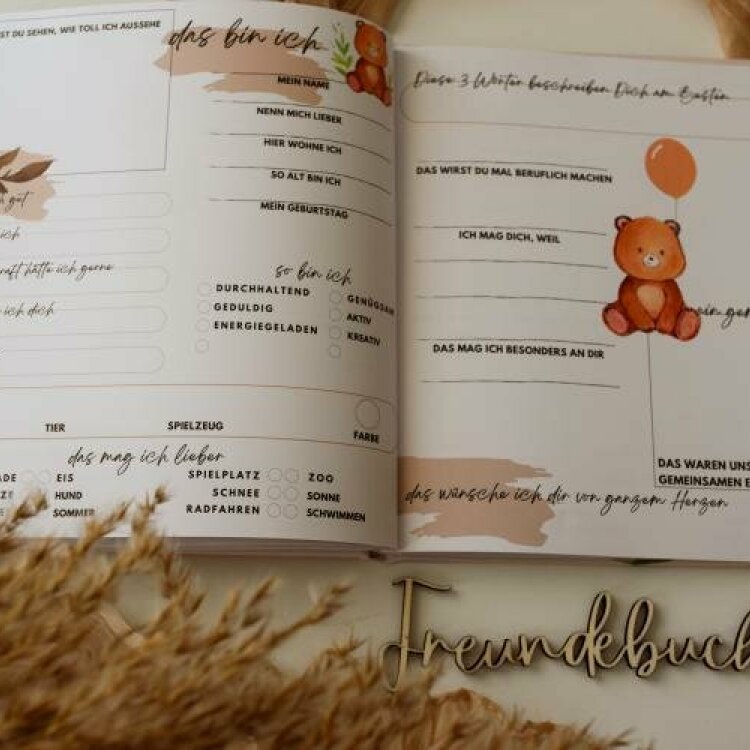 ST DU SEHEN, WIE TOLL ICH AUSSEHE
das bin ich
MEIN NAME
NENN MICH LIEBER
HIER WOHNE ICH
SO ALT BIN ICH
MEIN GEBURTSTAG
gut
ich
raft hätte ich gerne
ich dich
so bin ich
DURCHHALTEND
GENÜGSAM
GEDULDIG
AKTIV
ENERGIEGELADEN
KREATIV
TIER
SPIELZEUG
FARBE
das mag ich lieber
ADE
EIS
SPIELPLATZ
ZOO
ZE
HUND
SCHNEE
SONNE
E
SOMMER
RADFAHREN
SCHWIMMEN
Diese 3 Wörter beschreiben Dich am Besten
DAS WIRST DU MAL BERUFLICH MACHEN
ICH MAG DICH, WEIL
DAS MAG ICH BESONDERS AN DIR
DAS WAREN UNS
GEMEINSAMEN E
das wünsche ich dir von ganzem Herzen
Freundebuch